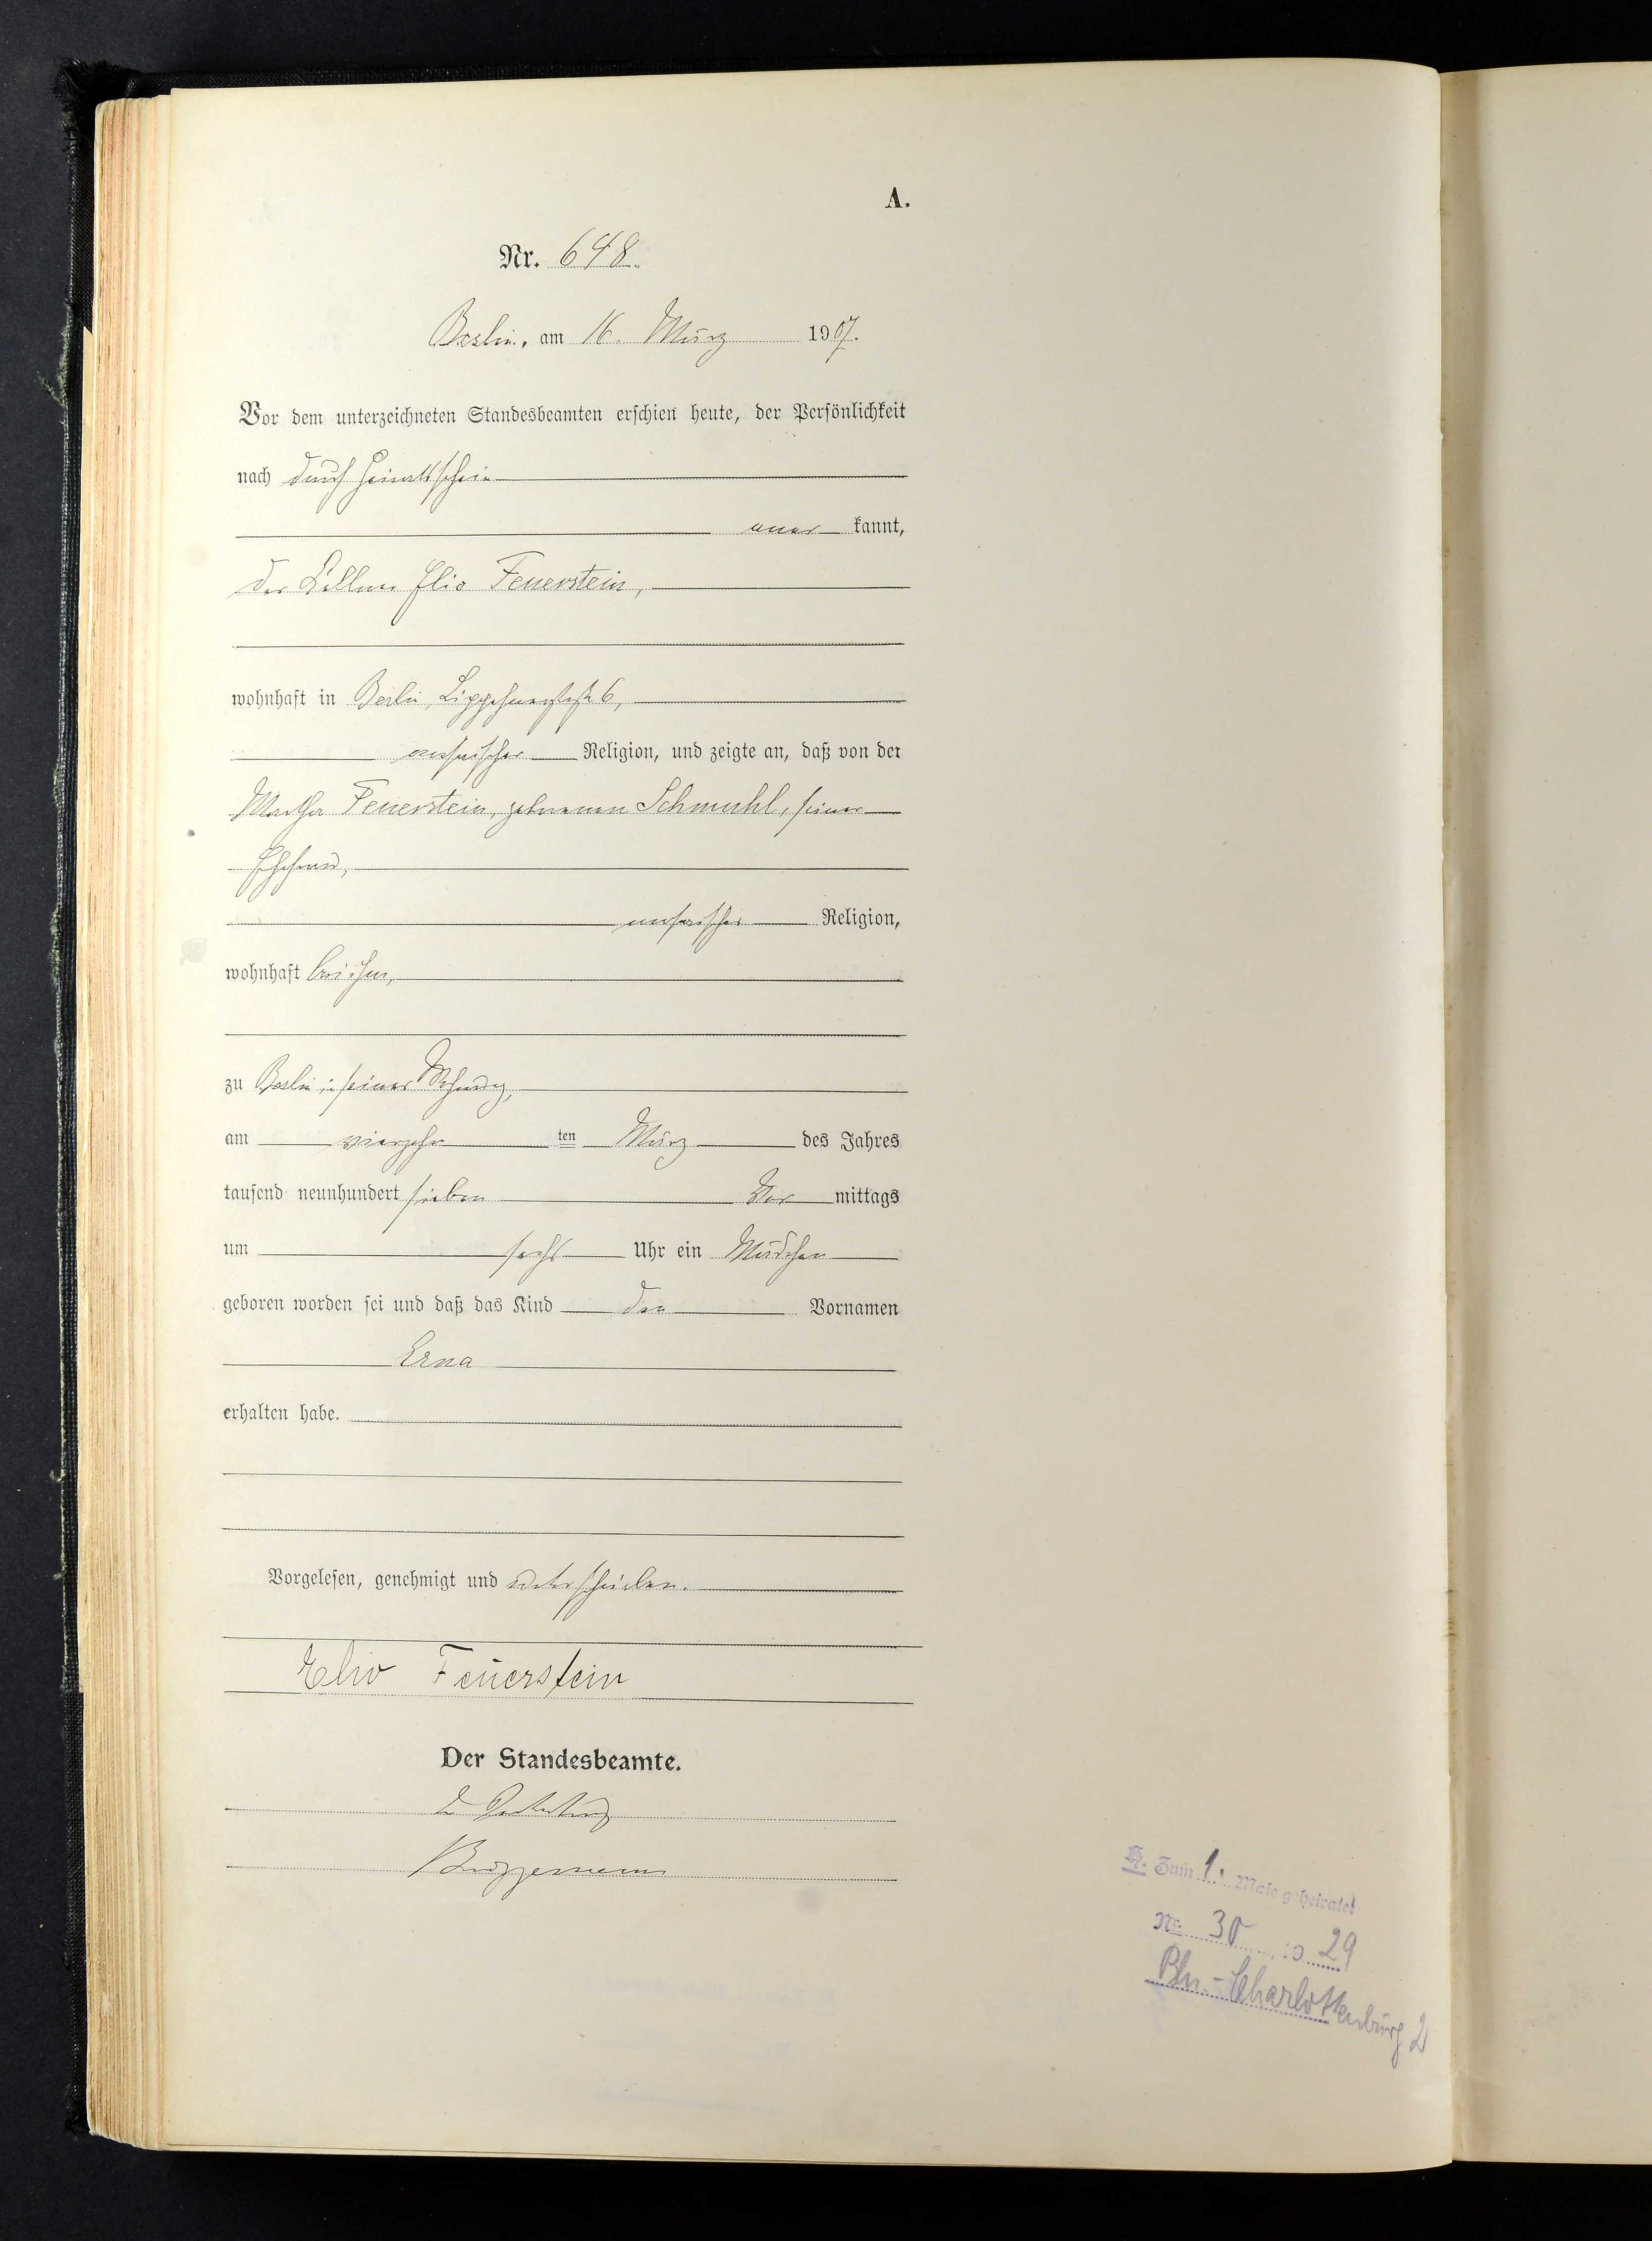 A.
Nr. 648.
Berlin, am 16. März 1907.
Vor dem unterzeichneten Standesbeamten erschien heute, der Persönlichkeit
nach durch Heiratsschein
aner kannt,
der Kellner Elio Feuerstein,
wohnhaft in Berlin, Lippehnerstr. 6,
mosaischer Religion, und zeigte an, daß von der
Martha Feuerstein, geborenen Schmuhl, seiner
Ehefrau,
mosaischer Religion,
wohnhaft bei ihm,
zu Berlin in seiner Wohnung,
am vierzehn ten März des Jahres
tausend neunhundert sieben Vor mittags
um sechs Uhr ein Mädchen
geboren worden sei und daß das Kind den Vornamen
Erna
erhalten habe.
Vorgelesen, genehmigt und unterschrieben.
Elio Feuerstein
Der Standesbeamte.
In Vertretung
Brüggemann
H. Zum 1. Male geheiratet
Nr. 30 19 29
Bln.-Charlottenburg 2